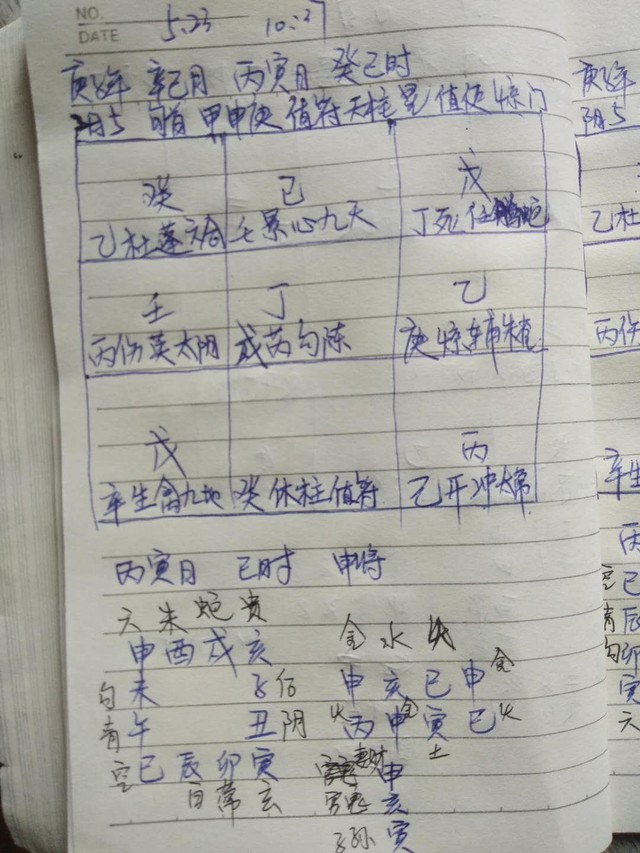 NO.
DATE 5.23 10:27
庚子年 辛巳月 丙寅日 癸巳时
阴5 旬首 甲申庚 值符天柱星 值使惊门
癸 己 戊
乙杜蓬六合 壬景心九天 丁死任蛇
壬 丁 乙
丙伤英太阴 戊芮勾陈 庚惊辅朱雀
戊 丙
辛生禽九地 癸休柱值符 己开冲太常
丙寅日 巳时 申将
六 朱 蛇 贵
申 酉 戌 亥 金 水 火
勾 未 子 后 申 亥 巳 申 金
青 午 丑 阴 火 丙 申 金 寅 巳 火
空 巳 辰 卯 寅 妻财 申 土
白 常 玄 官鬼 亥
子孙 寅
庚子年
阴5
乙杜
丙伤
辛生
丙
空 巳
青 辰
勾 卯
寅
六